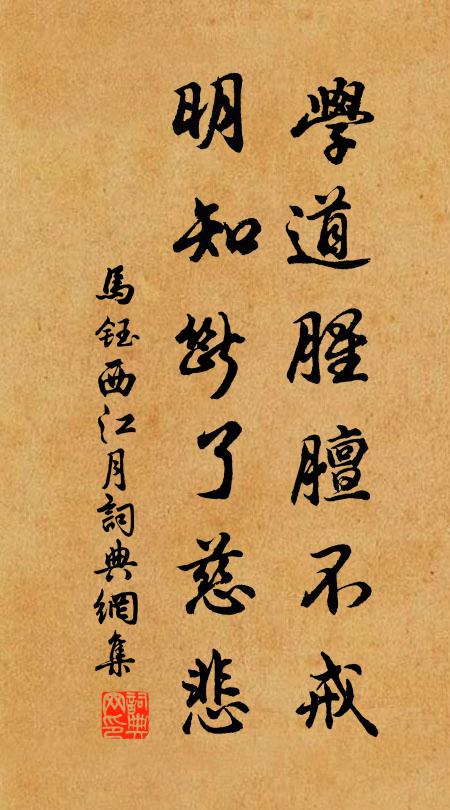 學道腥膻不戒
明知斷了慈悲
馬鈺西江月詞典網集
詞典网印